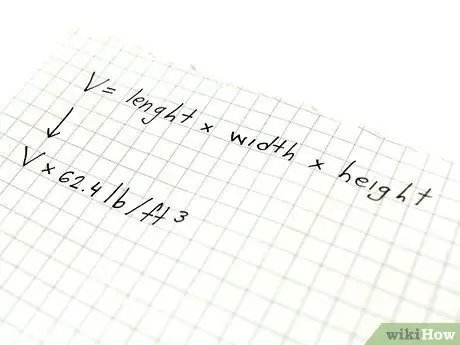 V = lenght x width x height
V x 62.4 lb/ft³
wikiHow